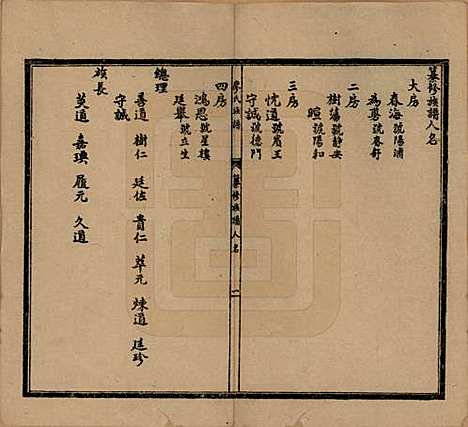 纂修族譜人名
大房
春海號陽浦
為夔號春舒
二房
樹蕩號靜安
暄號陽和
三房
忱道號賓王
守誠號德門
氏族譜
纂修族譜人名
二
四房
鴻恩號星樓
廷舉號立生
總理
善道 樹仁 廷佐 貴仁 萃元 煉道 廷珍
守誠
族長
英道 嘉璵 履元 久道